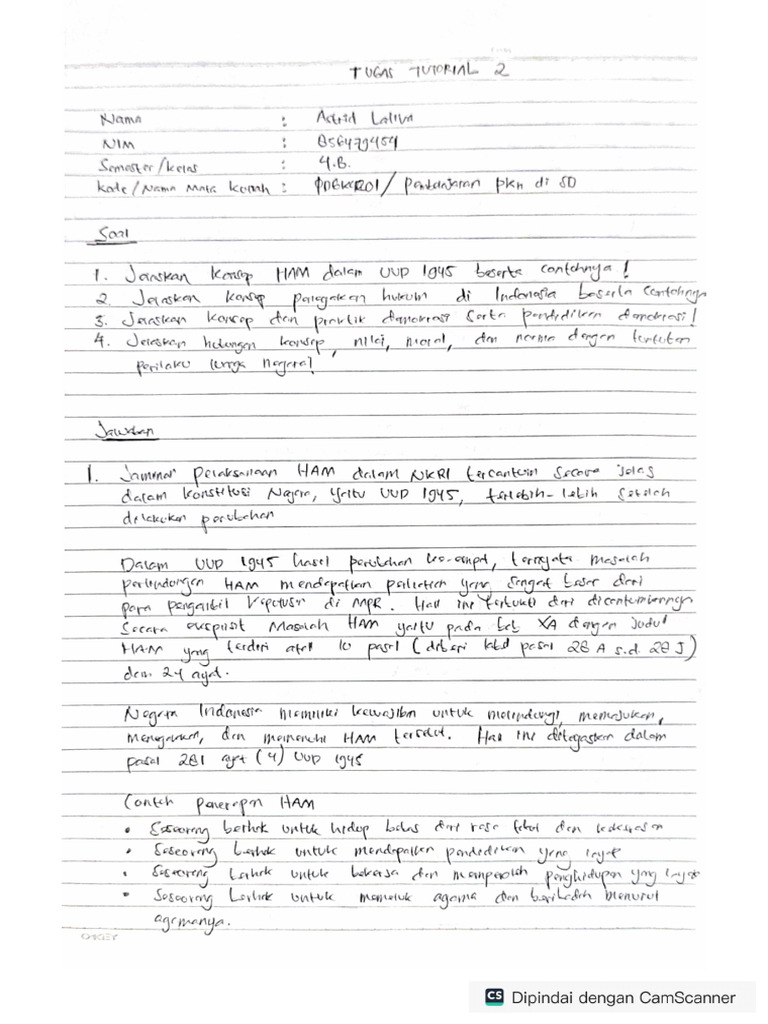 TUGAS TUTORIAL 2
Nama : Astrid Laliva
NIM : 856479454
Semester/kelas : 4.B.
Kode/Nama Mata Kuliah : PDGK4201/ Pembelajaran pkn di SD
Soal
1. Jelaskan konsep HAM dalam UUD 1945 beserta contohnya!
2. Jelaskan konsep penegakan hukum di Indonesia beserta contohnya
3. Jelaskan konsep dan praktik demokrasi serta pendidikan demokrasi!
4. Jelaskan hubungan konsep, nilai, moral, dan norma dengan tuntutan
perilaku warga negara!
Jawaban
1. Jaminan pelaksanaan HAM dalam NKRI tercantum secara jelas
dalam konstitusi Negara, yaitu UUD 1945, terlebih-lebih setelah
dilakukan perubahan
Dalam UUD 1945 hasil perubahan ke-empat, ternyata masalah
perlindungan HAM mendapatkan perhatian yang sangat besar dari
para pengambil keputusan di MPR. Hal ini terbukti dari dicantumkannya
Secara eksplisit Masalah HAM yaitu pada bab XA dengan judul
HAM yang terdiri atas 10 pasal (diberi label pasal 28 A s.d. 28 J)
dan 24 ayat.
Negara Indonesia memiliki kewajiban untuk melindungi, memajukan,
menegakkan, dan memenuhi HAM tersebut. Hal ini ditegaskan dalam
pasal 28I ayat (4) UUD 1945
Contoh penerapan HAM
• Seseorang berhak untuk hidup bebas dari rasa takut dan kekerasan
• Seseorang berhak untuk mendapatkan pendidikan yang layak
• Seseorang berhak untuk bekerja dan memperoleh penghidupan yang layak
• Seseorang berhak untuk memeluk agama dan beribadah menurut
agamanya.
CS Dipindai dengan CamScanner